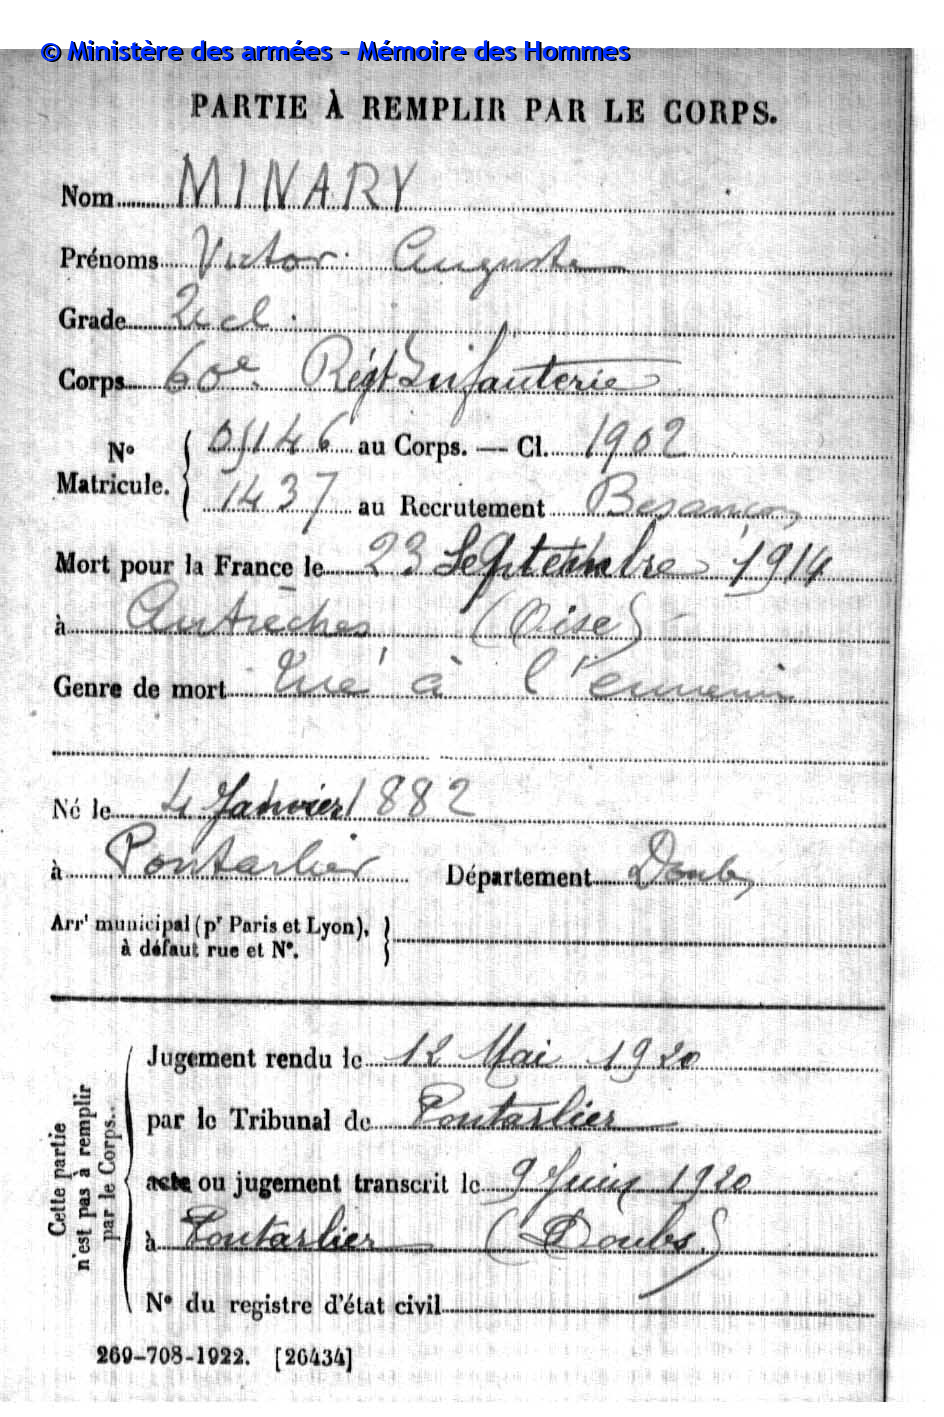 © Ministère des armées - Mémoire des Hommes
PARTIE À REMPLIR PAR LE CORPS.
Nom MINARY
Prénoms Victor Auguste
Grade 2e cl.
Corps 60e Régt Infanterie
N° Matricule. { 05146 au Corps. — Cl. 1902
1437 au Recrutement Besançon
Mort pour la France le 23 Septembre 1914
à Autrèches (Oise)
Genre de mort Tué à l'ennemi
Né le 4 Janvier 1882
à Pontarlier Département Doubs
Arrt municipal (pr Paris et Lyon), }
à défaut rue et N°.
Cette partie n'est pas à remplir par le Corps.
Jugement rendu le 12 Mai 1920
par le Tribunal de Pontarlier
acte ou jugement transcrit le 9 Juin 1920
à Pontarlier (Doubs)
N° du registre d'état civil
269-708-1922. [26434]